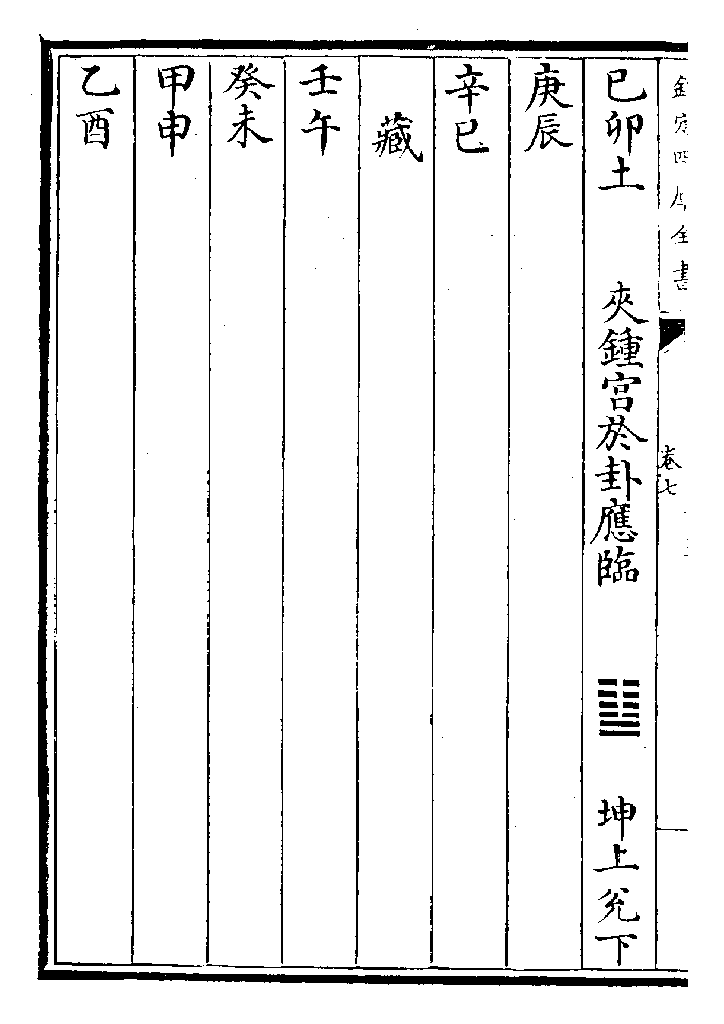 欽定四庫全書
卷七
己卯土　夾鍾宫於卦應臨　䷒　坤上兊下
庚辰
辛巳
藏
壬午
癸未
甲申
乙酉